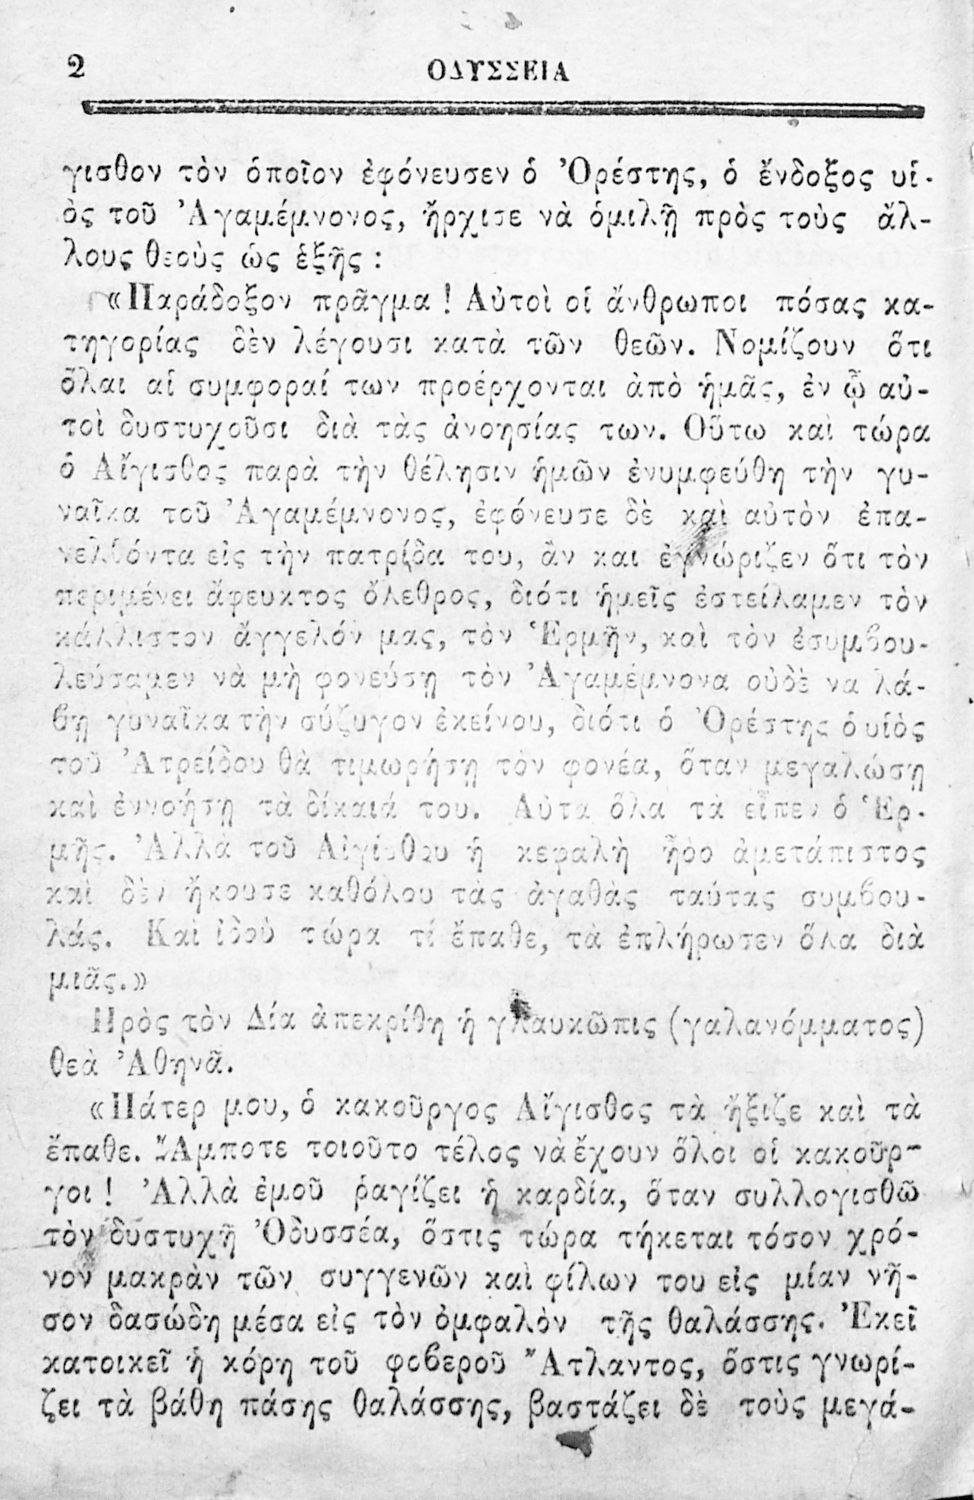 2
ΟΔΥΣΣΕΙΑ
γισθον τὸν ὁποῖον ἐφόνευσεν ὁ Ὀρέστης, ὁ ἔνδοξος υἱ-
ὸς τοῦ Ἀγαμέμνονος, ἤρχισε νὰ ὁμιλῇ πρὸς τοὺς ἄλ-
λους θεοὺς ὡς ἑξῆς :
«Παράδοξον πρᾶγμα ! Αὐτοὶ οἱ ἄνθρωποι πόσας κα-
τηγορίας δὲν λέγουσι κατὰ τῶν θεῶν. Νομίζουν ὅτι
ὅλαι αἱ συμφοραί των προέρχονται ἀπὸ ἡμᾶς, ἐν ᾧ αὐ-
τοὶ δυστυχοῦσι διὰ τὰς ἀνοησίας των. Οὕτω καὶ τώρα
ὁ Αἴγισθος παρὰ τὴν θέλησιν ἡμῶν ἐνυμφεύθη τὴν γυ-
ναῖκα τοῦ Ἀγαμέμνονος, ἐφόνευσε δὲ καὶ αὐτὸν ἐπα-
νελθόντα εἰς τὴν πατρίδα του, ἂν και ἐγνώριζεν ὅτι τὸν
περιμένει ἄφευκτος ὄλεθρος, διότι ἡμεῖς ἐστείλαμεν τὸν
κάλλιστον ἄγγελόν μας, τὸν Ἑρμῆν, καὶ τὸν ἐσυμβου-
λεύσαμεν νὰ μὴ φονεύσῃ τὸν Ἀγαμέμνονα οὐδὲ να λά-
βῃ γυναῖκα τὴν σύζυγον ἐκείνου, διότι ὁ Ὀρέστης ὁ υἱὸς
τοῦ Ἀτρείδου θὰ τιμωρήσῃ τὸν φονέα, ὅταν μεγαλώσῃ
καὶ ἐννοήσῃ τὰ δίκαιά του. Αὐτα ὅλα τὰ εἶπεν ὁ Ἑρ-
μῆς. Ἀλλὰ τοῦ Αἰγίσθου ἡ κεφαλὴ ἦδο ἀμετάπιστος
καὶ δὲν ἤκουσε καθόλου τὰς ἀγαθὰς ταύτας συμβου-
λάς. Καὶ ἰδοὺ τώρα τί ἔπαθε, τὰ ἐπλήρωσεν ὅλα διὰ
μιᾶς.»
Πρὸς τὸν Δία ἀπεκρίθη ἡ γλαυκῶπις (γαλανόμματος)
θεὰ Ἀθηνᾶ.
«Πάτερ μου, ὁ κακοῦργος Αἴγισθος τὰ ἤξιζε καὶ τὰ
ἔπαθε. Ἄμποτε τοιοῦτο τέλος νὰ ἔχουν ὅλοι οἱ κακοῦρ-
γοι ! Ἀλλὰ ἐμοῦ ῥαγίζει ἡ καρδία, ὅταν συλλογισθῶ
τὸν δυστυχῆ Ὀδυσσέα, ὅστις τώρα τήκεται τόσον χρό-
νον μακρὰν τῶν συγγενῶν καὶ φίλων του εἰς μίαν νῆ-
σον δασώδη μέσα εἰς τὸν ὀμφαλὸν τῆς θαλάσσης. Ἐκεῖ
κατοικεῖ ἡ κόρη τοῦ φοβεροῦ Ἄτλαντος, ὅστις γνωρί-
ζει τὰ βάθη πάσης θαλάσσης, βαστάζει δὲ τοὺς μεγά-